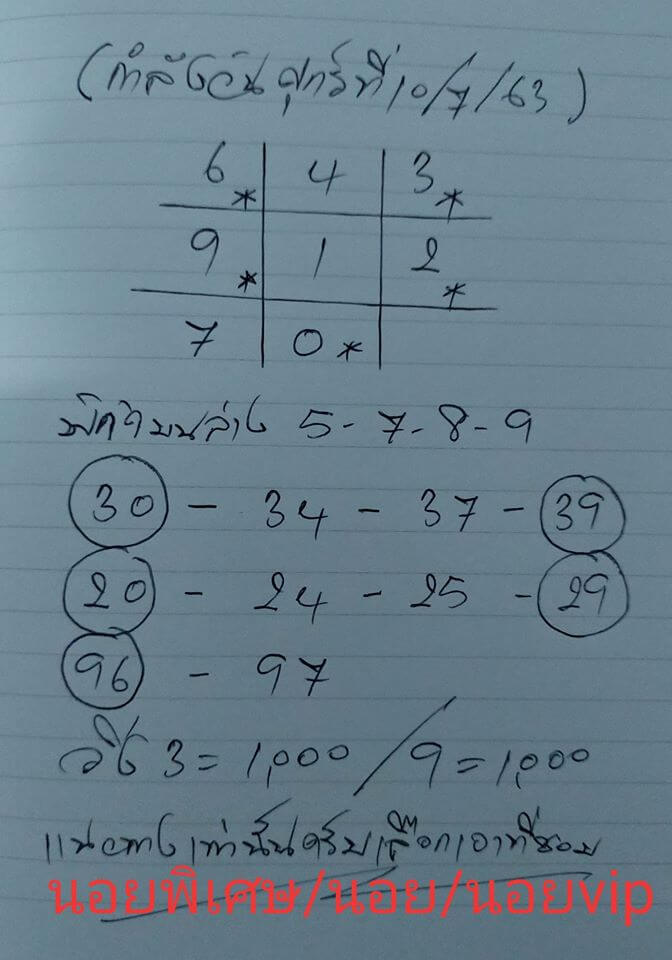 (กำลังวันศุกร์ที่ 10/7/63)
6* 4 3*
9* 1 2*
7 0*
พิกัดบนล่าง 5-7-8-9
30 - 34 - 37 - 39
20 - 24 - 25 - 29
96 - 97
วิ่ง 3 = 1,000 / 9 = 1,000
แนวทางเท่านั้นครับเลือกเอาที่ชอบ
นอยพิเศษ/นอย/นอยvip